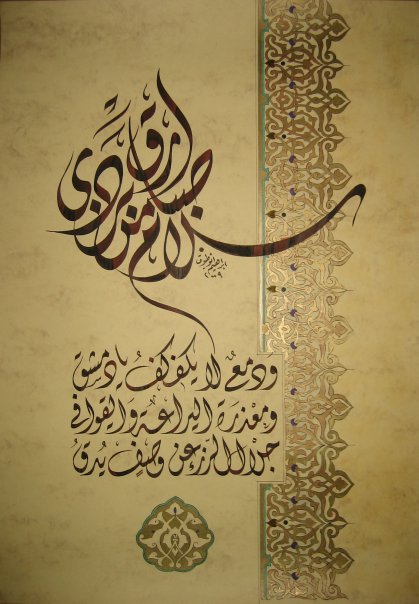 سلام من صبا بردى أرق
ابراهيم ابوطوق
٢٠٠٩
ودمعٌ لا يكفكفُ يا دمشق
ومعذرة اليراعة والقوافي
جلال الرزء عن وصفٍ يُدقُ